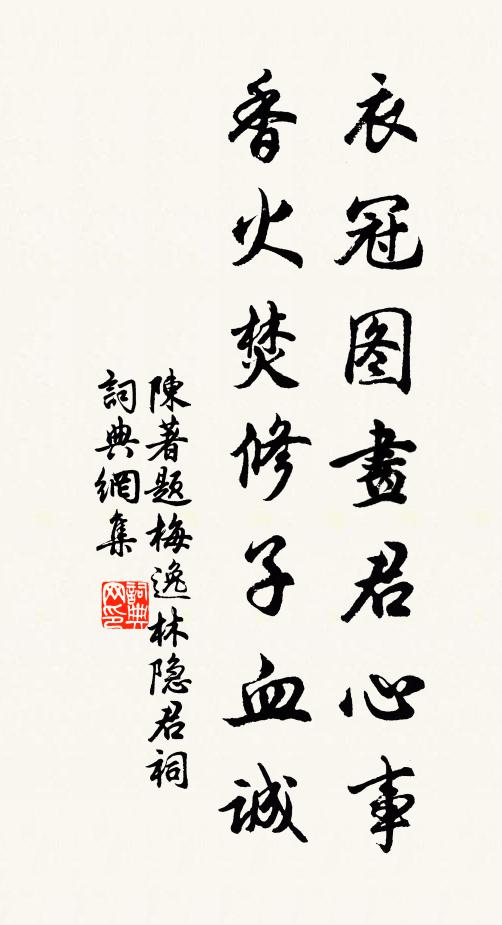 衣冠图畫君心事
香火焚修子血诚
陳著题梅逸林隐君祠
詞典網集
詞典
网印